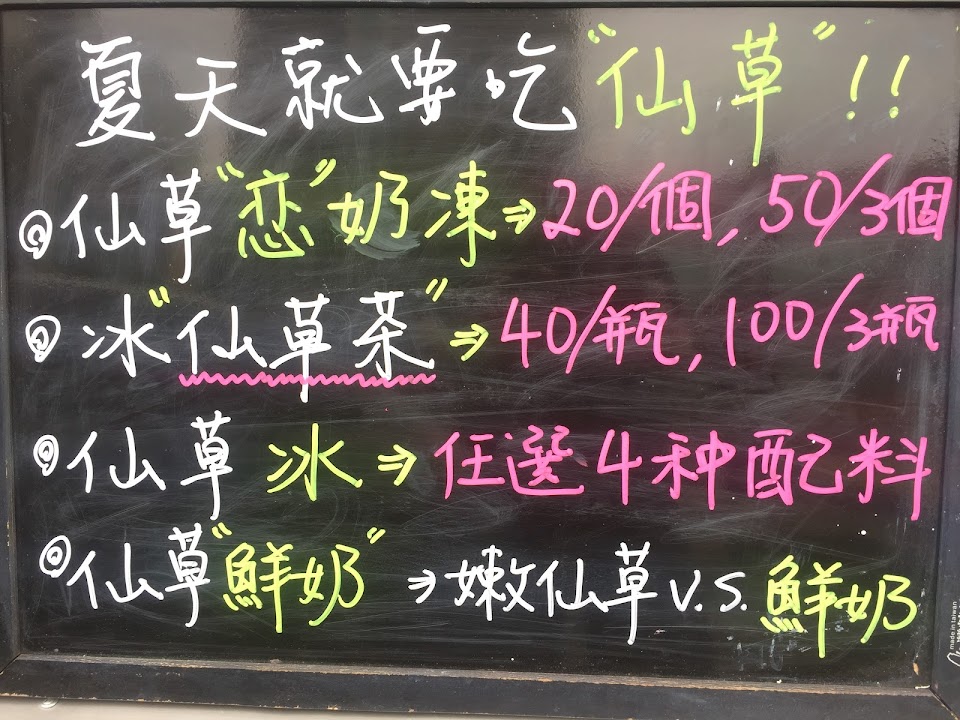 夏天就要吃"仙草"!!
◎仙草"恋"奶凍⇒20/個, 50/3個
◎冰"仙草茶"⇒40/瓶, 100/3瓶
◎仙草冰⇒任選4種配料
◎仙草"鮮奶"⇒嫩仙草V.S.鮮奶
made in taiwan